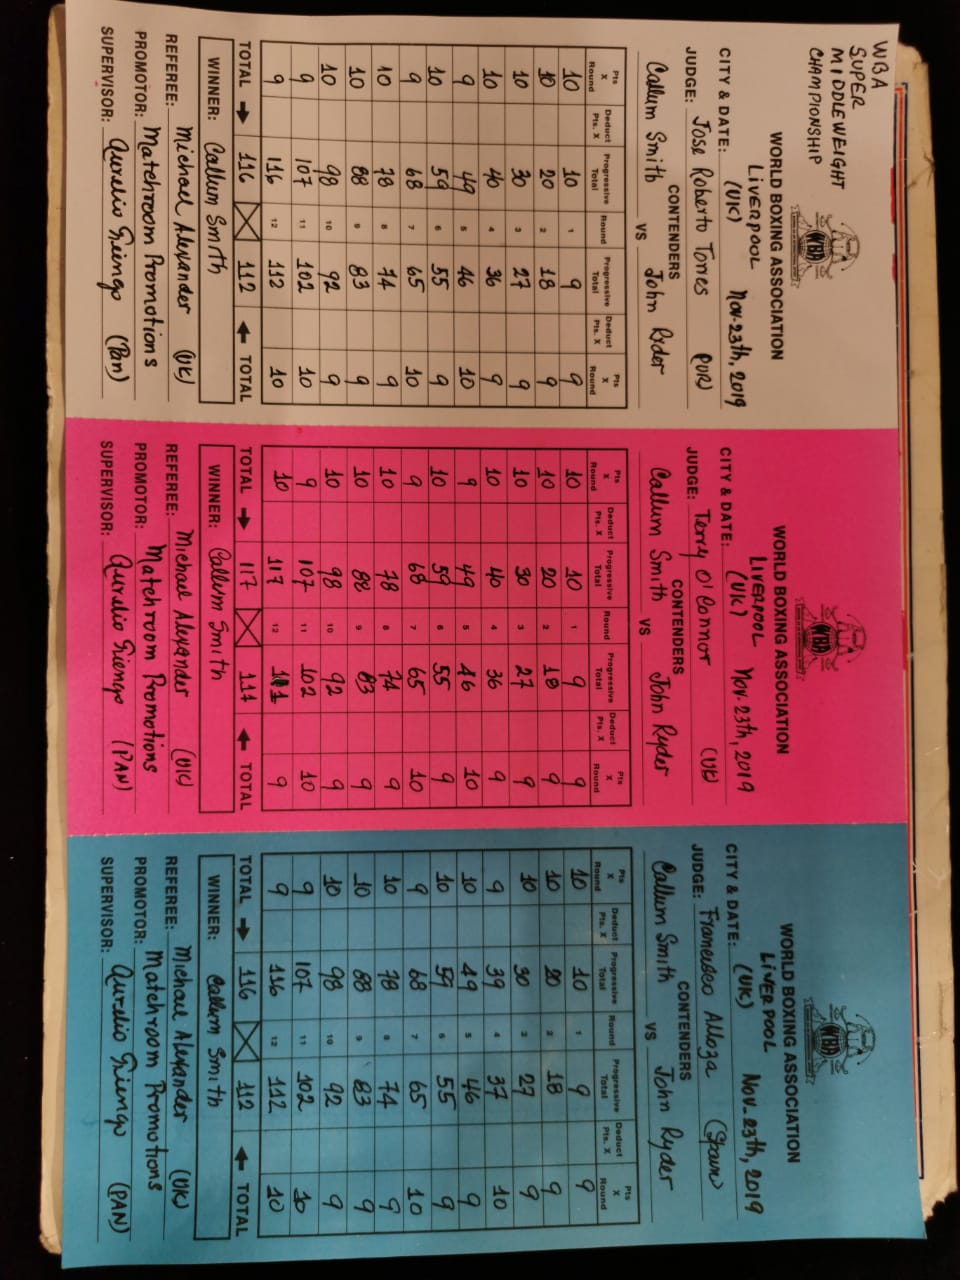 WBA
SUPER
MIDDLEWEIGHT
CHAMPIONSHIP
WBA
WORLD BOXING ASSOCIATION
LIVERPOOL
CITY & DATE: (UK) Nov. 23th, 2019
JUDGE: Jose Roberto Torres (PUR)
CONTENDERS
Callum Smith VS John Ryder
Pts X Round Deduct Pts. X Progressive Total Round Progressive Total Deduct Pts. X Pts X Round
10 10 1 9 9
10 20 2 18 9
10 30 3 27 9
10 40 4 36 9
9 49 5 46 10
10 59 6 55 9
9 68 7 65 10
10 78 8 74 9
10 88 9 83 9
10 98 10 92 9
9 107 11 102 10
9 116 12 112 10
TOTAL → 116 112 ← TOTAL
WINNER: Callum Smith
REFEREE: Michael Alexander (UK)
PROMOTOR: Matchroom Promotions
SUPERVISOR: Aurelio Fiengo (Pan)
WBA
WORLD BOXING ASSOCIATION
LIVERPOOL
CITY & DATE: (UK) Nov. 23th, 2019
JUDGE: Terry O'Connor (UK)
CONTENDERS
Callum Smith VS John Ryder
Pts X Round Deduct Pts. X Progressive Total Round Progressive Total Deduct Pts. X Pts X Round
10 10 1 9 9
10 20 2 18 9
10 30 3 27 9
10 40 4 36 9
9 49 5 46 10
10 59 6 55 9
9 68 7 65 10
10 78 8 74 9
10 88 9 83 9
10 98 10 92 9
9 107 11 102 10
10 117 12 111 9
TOTAL → 117 111 ← TOTAL
WINNER: Callum Smith
REFEREE: Michael Alexander (UK)
PROMOTOR: Matchroom Promotions
SUPERVISOR: Aurelio Fiengo (PAN)
WBA
WORLD BOXING ASSOCIATION
LIVERPOOL
CITY & DATE: (UK) Nov. 23th, 2019
JUDGE: Francisco Alloza
CONTENDERS
Callum Smith VS John Ryder
Pts X Round Deduct Pts. X Progressive Total Round Progressive Total Deduct Pts. X Pts X Round
10 10 1 9 9
10 20 2 18 9
10 30 3 27 9
9 39 4 37 10
10 49 5 46 9
10 59 6 55 9
9 68 7 65 10
10 78 8 74 9
10 88 9 83 9
10 98 10 92 9
9 107 11 102 10
9 116 12 112 10
TOTAL → 116 112 ← TOTAL
WINNER: Callum Smith
REFEREE: Michael Alexander (UK)
PROMOTOR: Matchroom Promotions
SUPERVISOR: Aurelio Fiengo (PAN)